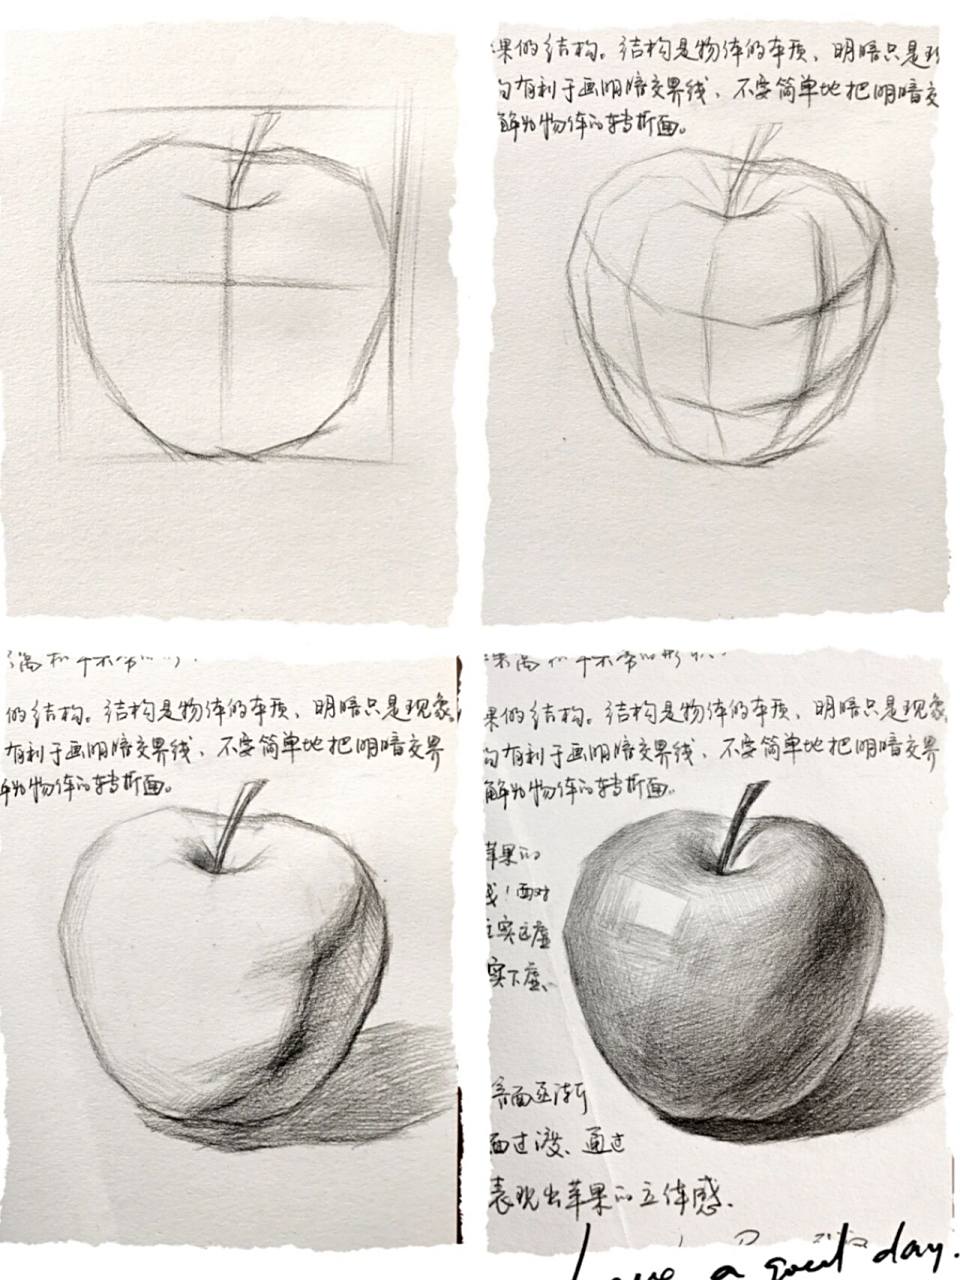 果的结构。结构是物体的本质、明暗只是现
有利于画明暗交界线、不要简单地把明暗交
解为物体的转折面。
的结构。结构是物体的本质、明暗只是现象,
有利于画明暗交界线、不要简单地把明暗交界
为物体的转折面。
果的结构。结构是物体的本质、明暗只是现象
有利于画明暗交界线、不要简单地把明暗交界
解为物体的转折面。
苹果的
线!面对
实近虚
实下虚、
面逐渐
面过渡、通过
表现出苹果的立体感.
Have a good day.